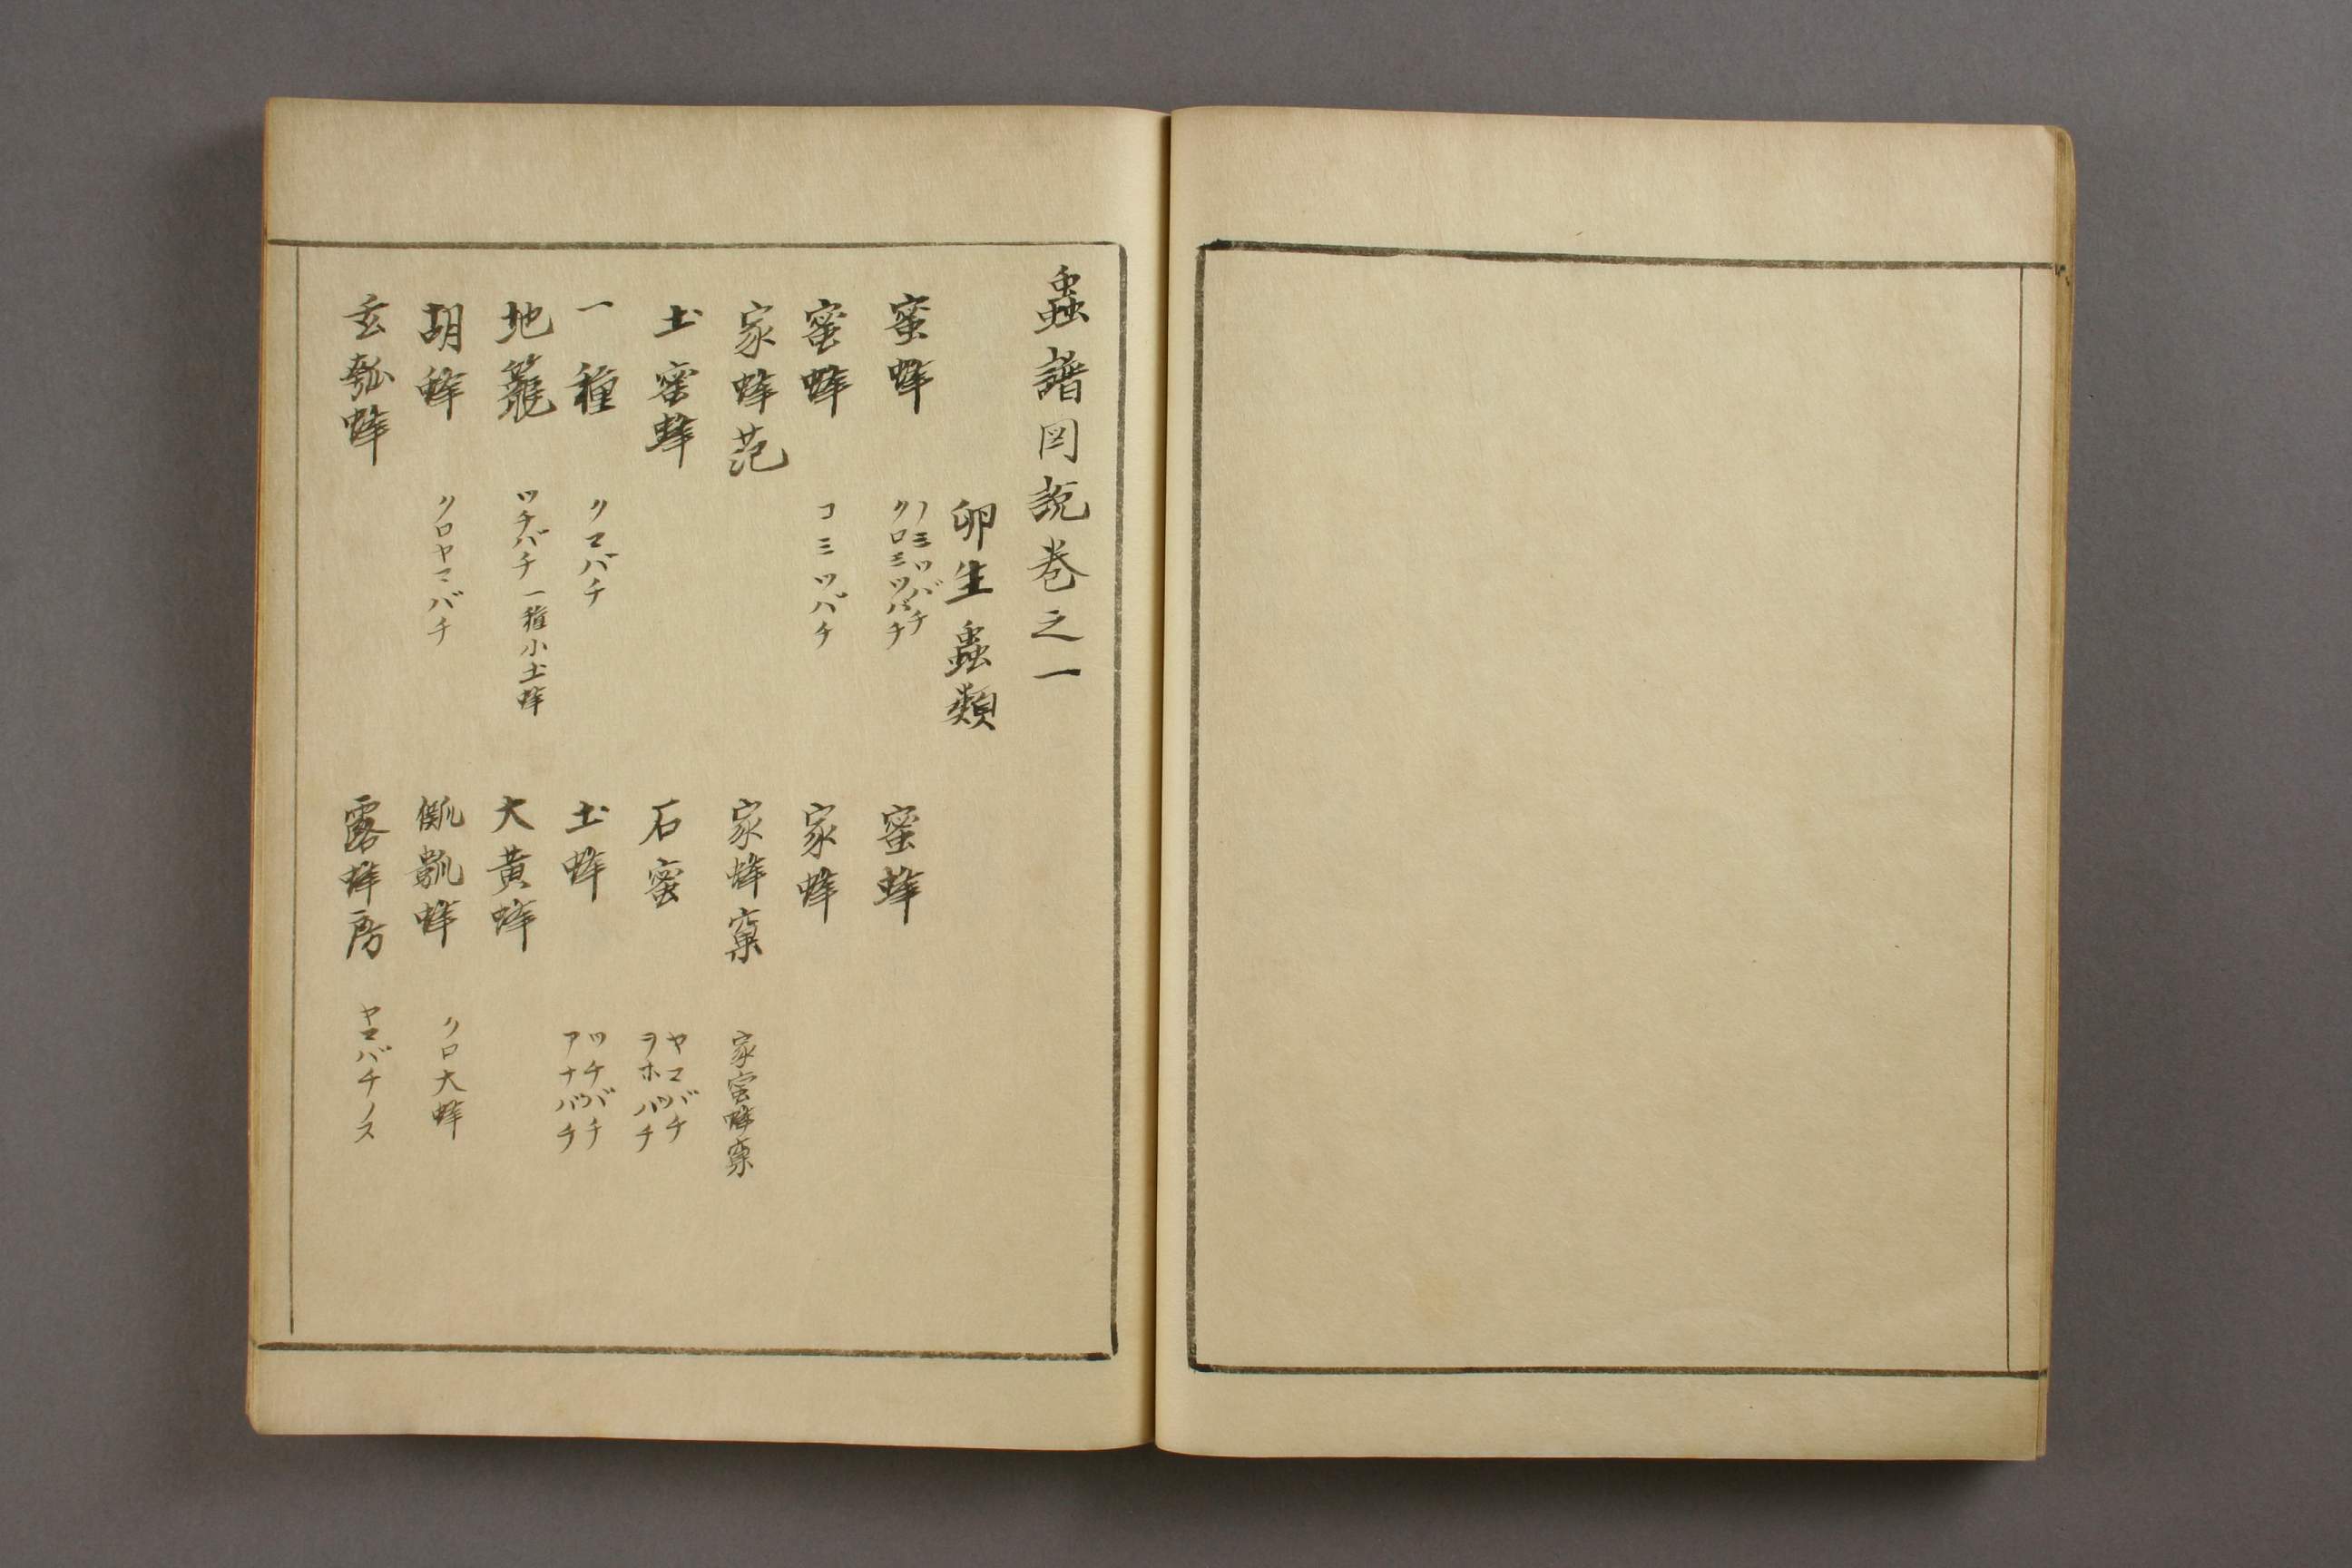 蟲譜図説巻之一
卵生蟲類
蜜蜂 ノミツバチ クロミツバチ 蜜蜂
蜜蜂 コミツバチ 家蜂
家蜂范 家蜂窠 家蜜蜂窠
土蜜蜂 石蜜 ヤマバチ ヲホバチ
一種 クマバチ 土蜂 ツチバチ アナバチ
地 ツチバチ 一種小土蜂 大黄蜂
胡蜂 クロヤマバチ 蜂 クロ大蜂
玄瓠蜂 露蜂房 ヤマバチノス